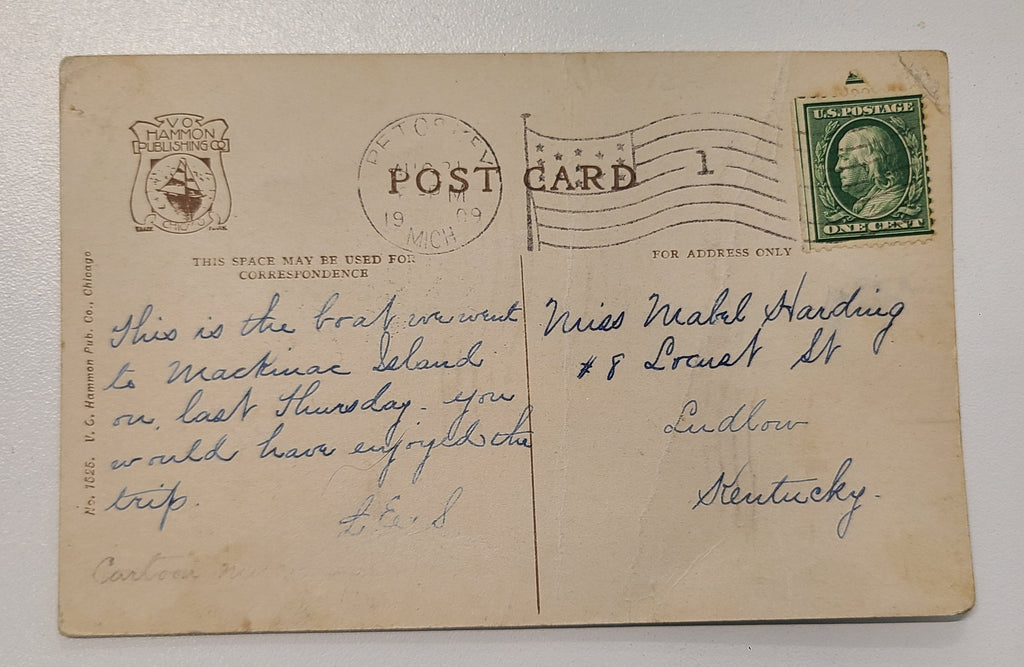 V.O.
HAMMON
PUBLISHING CO
CHICAGO
PETOSKEY
AUG 21
M
1909
MICH
1
U.S. POSTAGE
ONE CENT
POST CARD
THIS SPACE MAY BE USED FOR
CORRESPONDENCE
FOR ADDRESS ONLY
No. 1525. V. O. Hammon Pub. Co., Chicago
This is the boat we went
to Mackinac Island
on, last Thursday. you
would have enjoyed the
trip.
Miss Mabel Harding
# 8 Locust St
Ludlow
Kentucky.